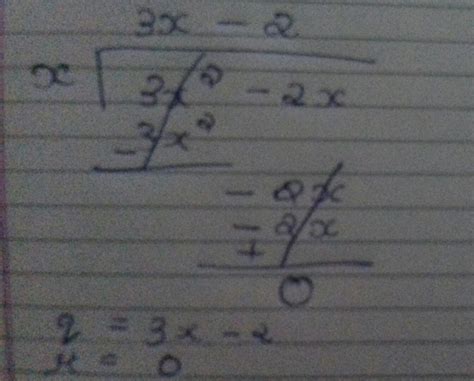 3x - 2
x 3x² - 2x
- 3x²
- 2x
- 2x
+
0
q = 3x - 2
r = 0